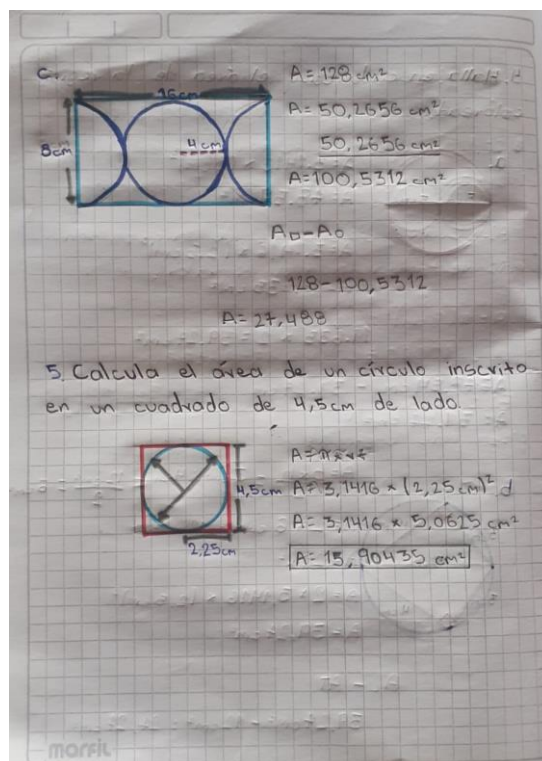 C.
16cm
8cm
4cm
A= 128 cm²
A= 50,2656 cm²
50,2656 cm²
A=100,5312 cm²
A□-A○
128-100,5312
A= 27,488
5. Calcula el área de un círculo inscrito
en un cuadrado de 4,5cm de lado.
4,5cm
2,25cm
A= π x r²
A= 3,1416 x (2,25 cm)²
A= 3,1416 x 5,0625 cm²
A= 15,90435 cm²
morfil